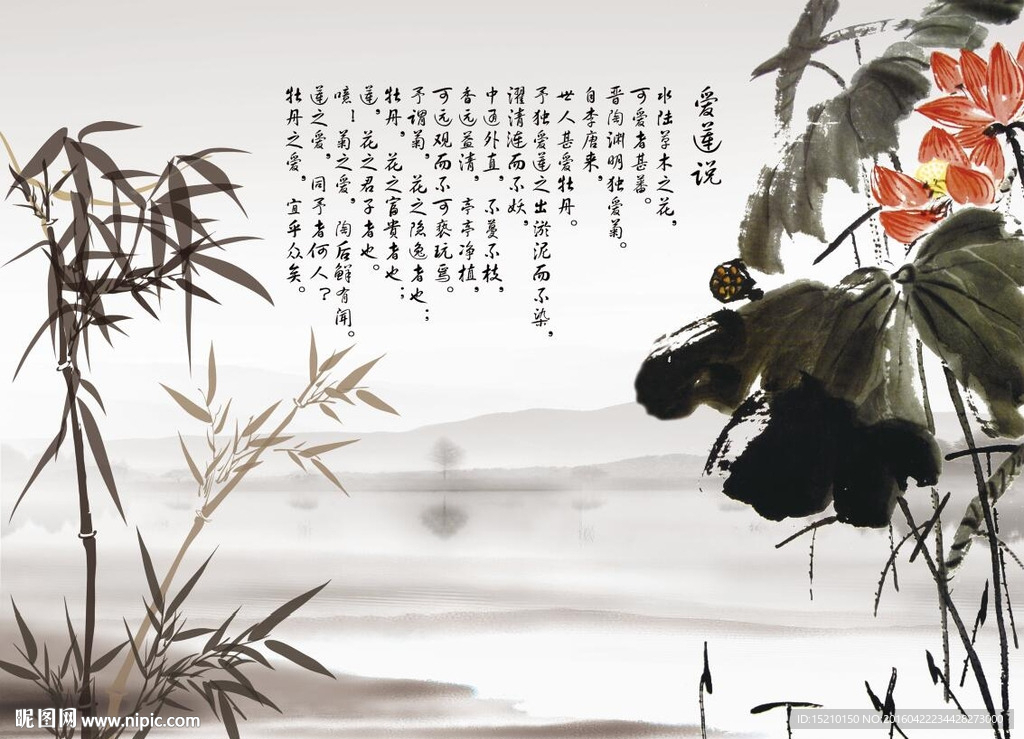 爱莲说
水陆草木之花，
可爱者甚蕃。
晋陶渊明独爱菊。
自李唐来，
世人甚爱牡丹。
予独爱莲之出淤泥而不染，
濯清涟而不妖，
中通外直，不蔓不枝，
香远益清，亭亭净植，
可远观而不可亵玩焉。
予谓菊，花之隐逸者也；
牡丹，花之富贵者也；
莲，花之君子者也。
噫！菊之爱，陶后鲜有闻。
莲之爱，同予者何人？
牡丹之爱，宜乎众矣。
昵图网 www.nipic.com
ID:15210150 NO:20160422234428273000